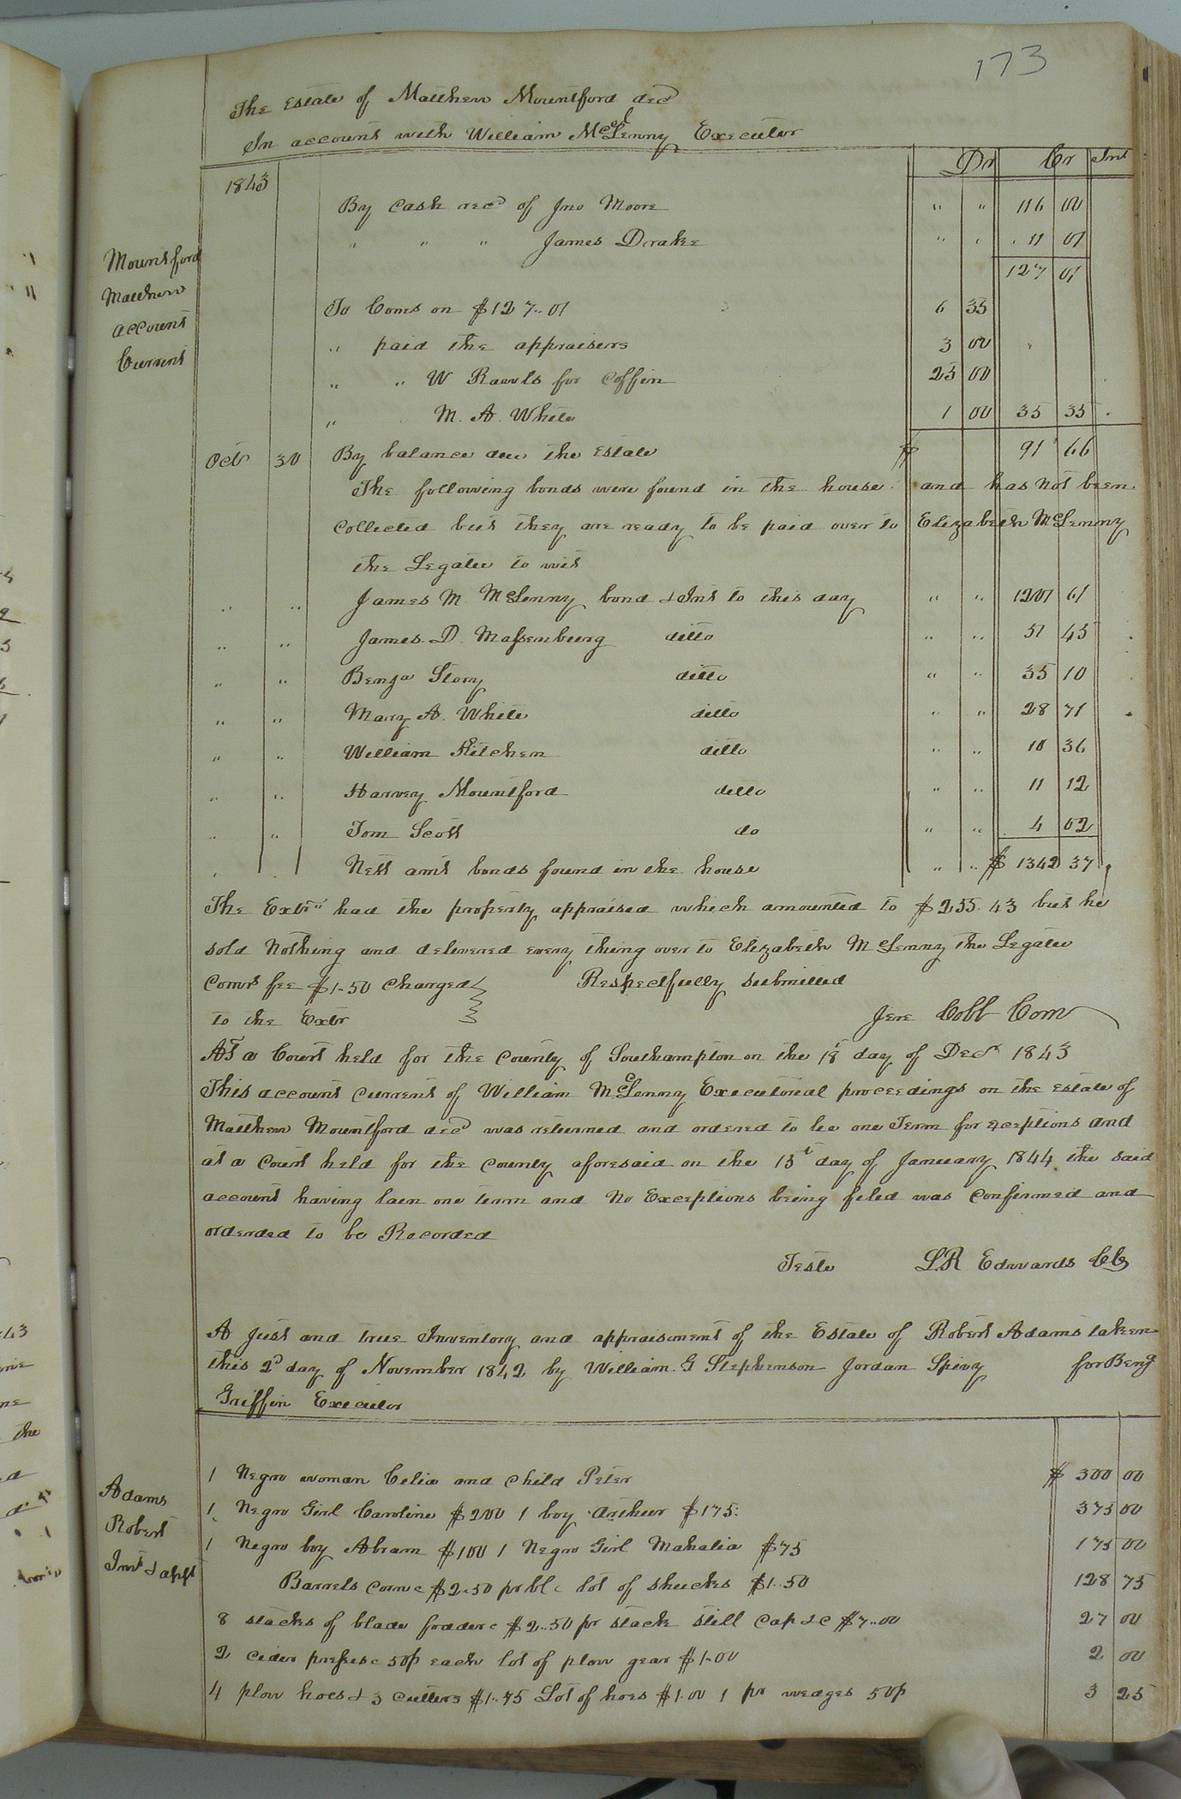 173
The Estate of Matthew Mountford decd
In account with William McLenny Executor
Dr Cr Int
1843
By Cash recd of Jno Moore " " 116 00
" " " James Drake " " 11 01
127 01
Mountford
Matthew
account
Current
To Coms on $127..01 6 35
" paid the appraisers 3 00
" " W Rawls for Coffin 25 00
" M. A. White 1 00 35 35
Oct 30 By balance due the Estate $ 91 66
The following bonds were found in the house and has not been
Collected but they are ready to be paid over to Elizabeth McLenny
the Legatee to wit
" " James M McLenny bond & Int to this day " " 1201 61
" " James. D. Massenburg ditto " " 51 45
" " Benja Story ditto " " 35 10
" " Mary A. White ditto " " 28 71
" " William Kitchen ditto " " 10 36
" " Harvey Mountford ditto " " 11 12
" " Tom Scott do " " 4 02
" Nett amt bonds found in the house " " $ 1342 37
The Extr had the property appraised which amounted to $255.43 but he
sold Nothing and delivered every thing over to Elizabeth McLenny the Legatee
Comrs fee $1.50 Charged Respectfully submitted
to the Extr Jere Cobb Com
At a Court held for the County of Southampton on the 18 day of Decr 1843
This account Current of William McLenny Executorial proceedings on the Estate of
Matthew Mountford decd was returned and ordered to lie one Term for exceptions and
at a Court held for the County aforesaid on the 15t day of January 1844 the said
account having lain one term and No Exceptions being filed was Confirmed and
orderded to be Recorded
Teste L.R Edwards Clk
A Just and true Inventory and appraisement of the Estate of Robert Adams taken
this 2d day of November 1842 by William. G Stephenson Jordan Spivy for Benj
Griffin Executor
Adams
Robert
Invt & appt
1 Negro woman Celia and child Peter $ 300 00
1 Negro Girl Caroline $200 1 boy Archeer $175. 375 00
1 Negro boy Abram $100 1 Negro Girl Mahalia $75 175 00
Barrels Corn c $2.50 pr bl c lot of shucks $1.50 128 75
8 stacks of blade fodder c $2..50 pr stack still Cap &c $7..00 27 00
2 cider presses c 50 each lot of plow gear $1.00 2 00
4 plow hoes & 3 Cutters $1..75 Lot of hoes $1.00 1 pr wedges 50 3 25